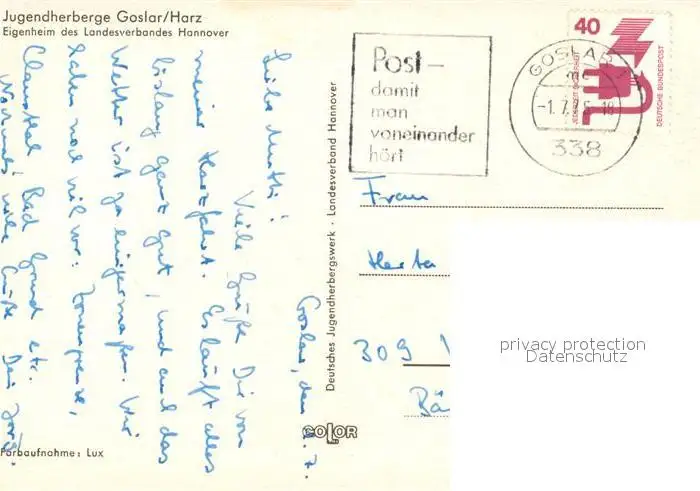 Jugendherberge Goslar/Harz
Eigenheim des Landesverbandes Hannover
Goslar, den 1.7.
Liebe Mutti!
Viele Grüße Dir von
meiner Harzfahrt. Es läuft alles
bislang ganz gut, und auch das
Wetter ist so einigermaßen. Wir
haben noch viel vor: Zonengrenze,
Clausthal, Bad Grund etc.
Nochmals viele Grüße Dein Jörg.
Farbaufnahme: Lux
Deutsches Jugendherbergswerk · Landesverband Hannover
COLOR
Post –
damit
man
voneinander
hört
GOSLAR 1
-1.7.75-18
338
40
JEDERZEIT SICHERHEIT
DEUTSCHE BUNDESPOST
Frau
Herta
309
privacy protection
Datenschutz